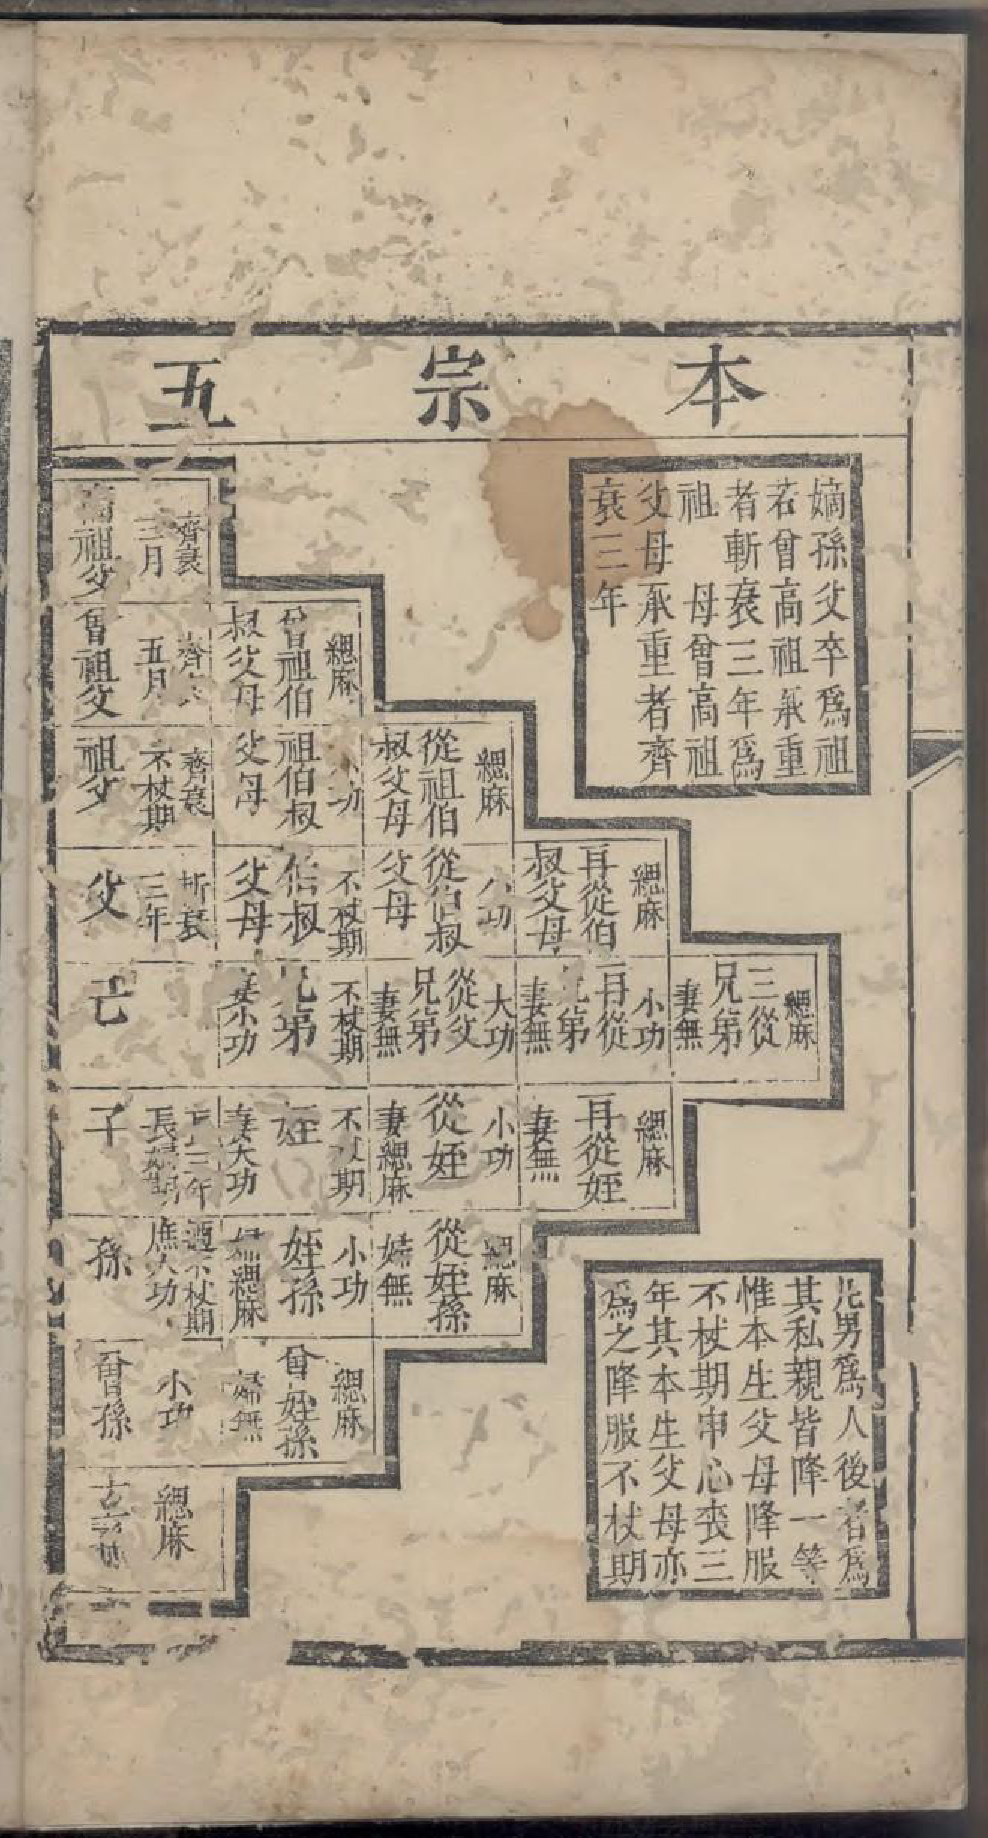 本宗五
嫡孫父卒爲祖
若曾高祖承重
者斬衰三年爲
祖母曾高祖
父母承重者齊
衰三年
齊衰
三月
高祖父
緦麻
曾祖伯
叔父母
齊
五月
曾祖父
緦麻
從祖伯
叔父母
功
祖伯叔
父母
齊衰
不杖期
祖父
緦麻
再從伯
叔父母
小功
從伯叔
父母
不杖期
伯叔
父母
斬衰
三年
父
緦麻
三從
兄弟
妻無
小功
再從
兄弟
妻無
大功
從父
兄弟
妻無
不杖期
兄弟
妻小功
己
緦麻
再從姪
妻無
小功
從姪
妻緦麻
不杖期
姪
妻大功
三年
長婦期
子
緦麻
從姪孫
婦無
小功
姪孫
婦緦麻
適不杖期
庶大功
孫
緦麻
曾姪孫
婦無
小功
曾孫
緦麻
玄孫
凡男爲人後者爲
其私親皆降一等
惟本生父母降服
不杖期申心喪三
年其本生父母亦
爲之降服不杖期